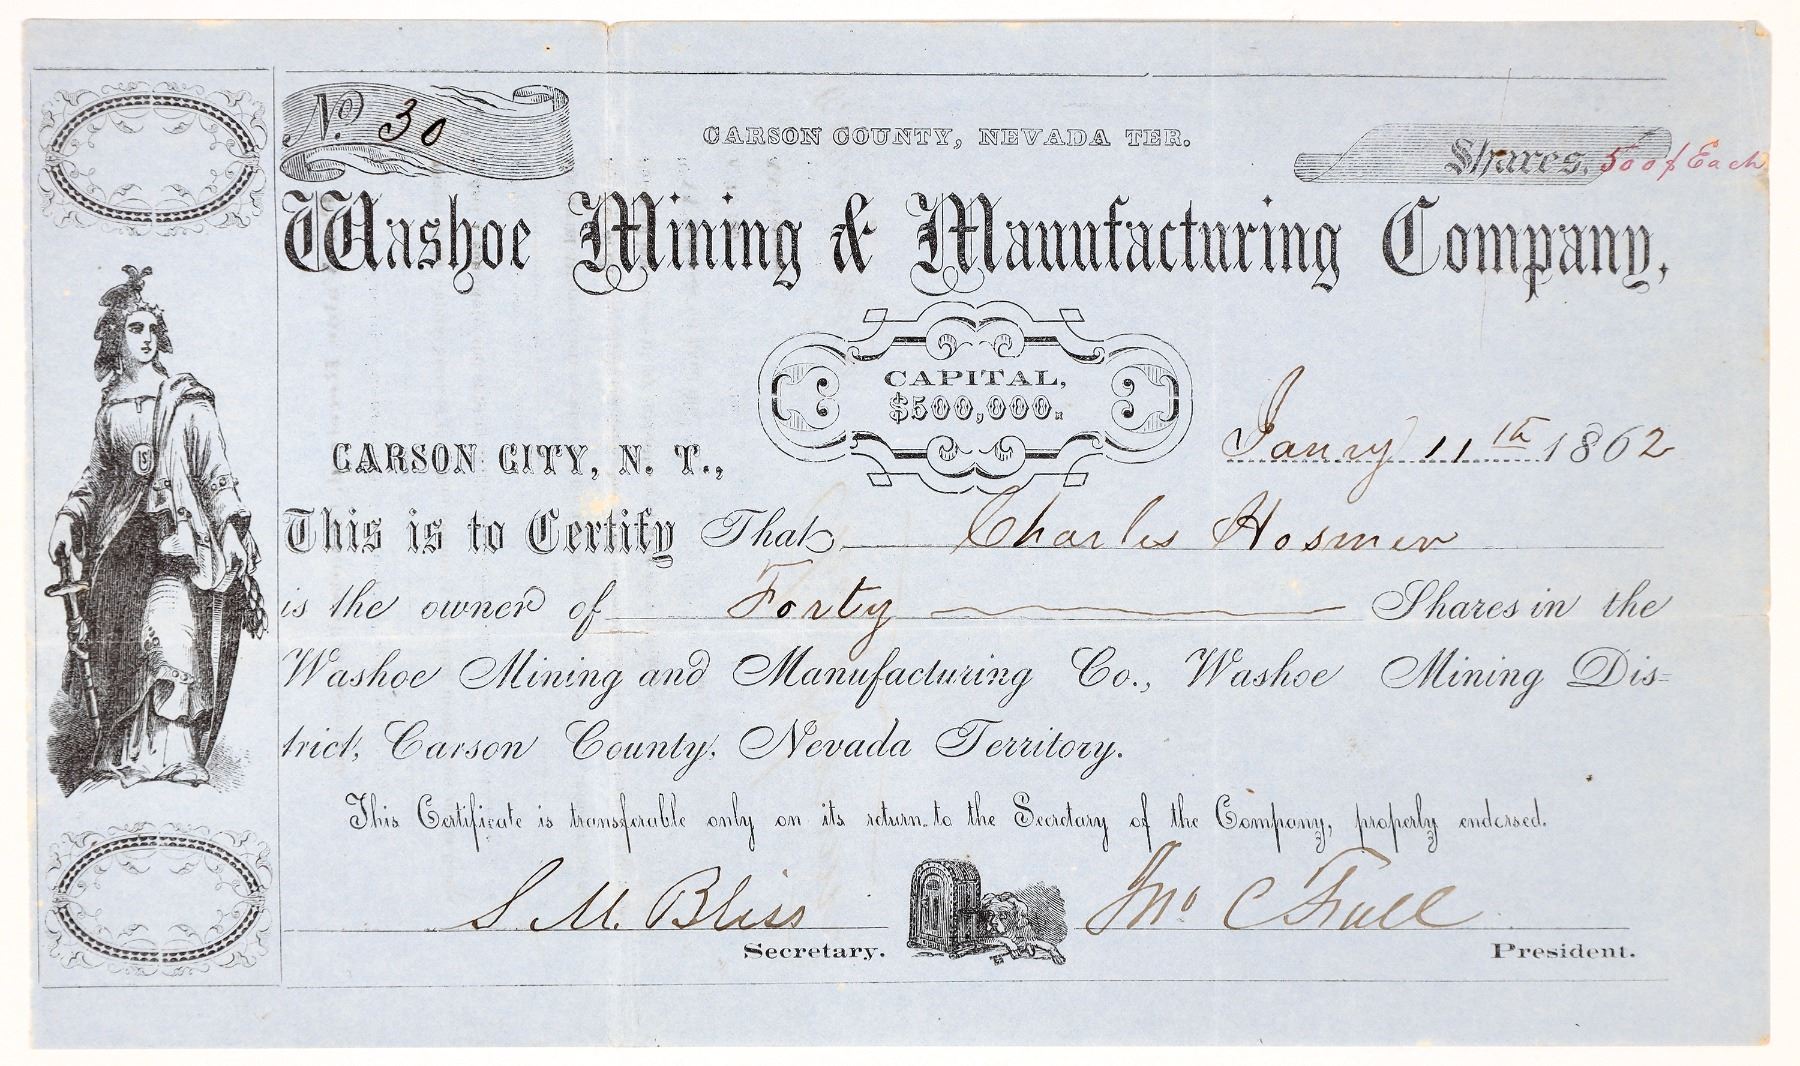 No. 30
CARSON COUNTY, NEVADA TER.
Shares. 500$ Each
Washoe Mining & Manufacturing Company,
CAPITAL,
$500,000.
CARSON CITY, N. T., Janry 11th 1862
This is to Certify That Charles Hosmer
is the owner of Forty Shares in the
Washoe Mining and Manufacturing Co., Washoe Mining Dis=
trict, Carson County, Nevada Territory.
This Certificate is transferable only on its return to the Secretary of the Company, properly endorsed.
S. M. Bliss
Secretary.
Jno C
President.
US